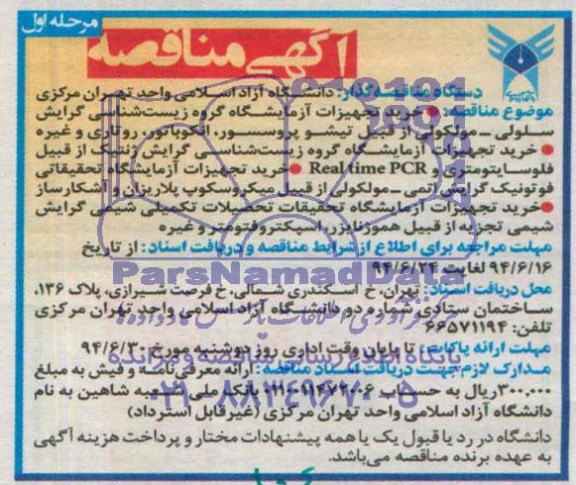 مرحله اول
آگهی مناقصه
دستگاه مناقصه گذار: دانشگاه آزاد اسلامی واحد تهران مرکزی
موضوع مناقصه: ● خرید تجهیزات آزمایشگاه گروه زیست‌شناسی گرایش
سلولی ـ مولکولی از قبیل تیشو پروسسور، انکوباتور، روتاری و غیره
● خرید تجهیزات آزمایشگاه گروه زیست‌شناسی گرایش ژنتیک از قبیل
فلوسایتومتری و Real time PCR ● خرید تجهیزات آزمایشگاه تحقیقاتی
فوتونیک گرایش اتمی ـ مولکولی از قبیل میکروسکوپ پلاریزان و آشکارساز
● خرید تجهیزات آزمایشگاه تحقیقات تحصیلات تکمیلی شیمی گرایش
شیمی تجزیه از قبیل هموژنایزر، اسپکتروفتومتر و غیره
مهلت مراجعه برای اطلاع از شرایط مناقصه و دریافت اسناد: از تاریخ
۹۴/۶/۱۶ لغایت ۹۴/۶/۲۴
ParsNamadData
محل دریافت اسناد: تهران، خ اسکندری شمالی، خ فرصت شیرازی، پلاک ۱۳۶،
ساختمان ستادی شماره دو دانشگاه آزاد اسلامی واحد تهران مرکزی
تلفن: ۶۶۵۷۱۱۹۴
مهلت ارائه پاکات: تا پایان وقت اداری روز دوشنبه مورخ ۹۴/۶/۳۰
پایگاه اطلاع رسانی مناقصه و مزایده
مدارک لازم جهت دریافت اسناد مناقصه: ارائه معرفی‌نامه و فیش به مبلغ
۳۰۰,۰۰۰ ریال به حساب بانک ملی شعبه شاهین به نام
۰۲۱-۸۸۳۴۹۶۷۰-۵
دانشگاه آزاد اسلامی واحد تهران مرکزی (غیر قابل استرداد)
دانشگاه در رد یا قبول یک یا همه پیشنهادات مختار و پرداخت هزینه آگهی
به عهده برنده مناقصه می‌باشد.